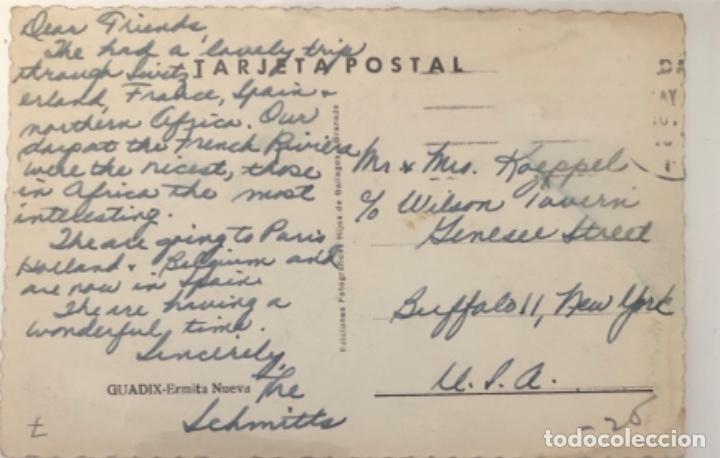 Dear Friends,
The had a lovely trip
through Switz
erland, France, Spain &
northern Africa. Our
days at the French Riviera
were the nicest, those
in Africa the most
interesting.
The are going to Paris
Holland & Belgium and
are now in Spain.
The are having a
wonderful time.
Sincerely,
The
Schmitts
TARJETA POSTAL
GUADIX-Ermita Nueva
Ediciones Fotográficas Hijos de Gallegos - Granada
Mr & Mrs. Koeppel
c/o Wilson Tavern
Genesee Street
Buffalo 11, New York
U. S. A.
AY
- 25
todocoleccion